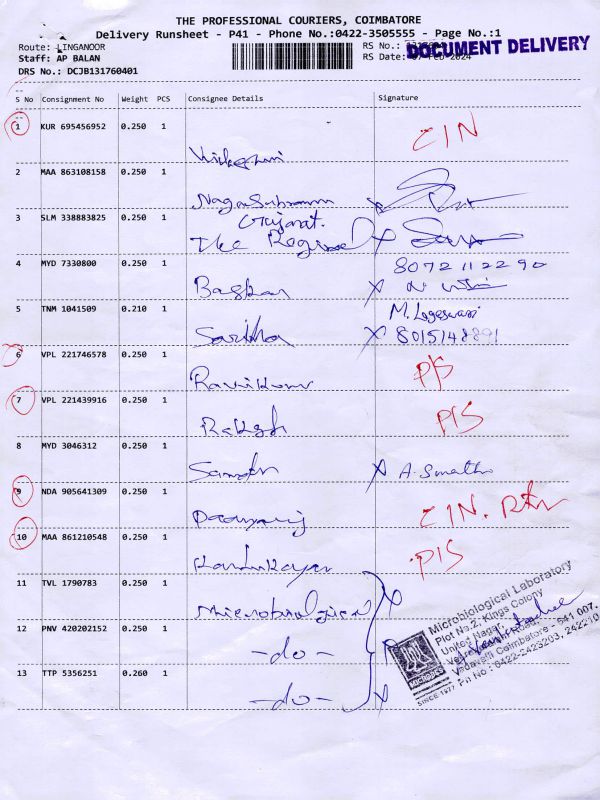 THE PROFESSIONAL COURIERS, COIMBATORE
Delivery Runsheet - P41 - Phone No.:0422-3505555 - Page No.:1
Route: LINGANOOR RS No.:
Staff: AP BALAN RS Date: 07-Feb-2024
DOCUMENT DELIVERY
DRS No.: DCJB131760401
S No Consignment No Weight PCS Consignee Details Signature
1 KUR 695456952 0.250 1
CIN
2 MAA 863108158 0.250 1
3 SLM 338883825 0.250 1
Gujarat.
The
4 MYD 7330800 0.250 1
8072112290
Baskar X
5 TNM 1041509 0.210 1
M. Logeswari
Saritha X 8015148891
6 VPL 221746578 0.250 1
P/S
Ravikumar
7 VPL 221439916 0.250 1
P/S
Rakesh
8 MYD 3046312 0.250 1
X A. Sumathi
9 NDA 905641309 0.250 1
CIN.
10 MAA 861210548 0.250 1
P/S
11 TVL 1790783 0.250 1
Microbiological X
12 PNV 420202152 0.250 1
-do-
13 TTP 5356251 0.260 1
-do- X
Microbiological Laboratory
Plot No.2, Kings Colony
United Nagar,
Vedavalli Coimbatore - 641 007.
SINCE 1977 PH No : 0422-2423203, 242210